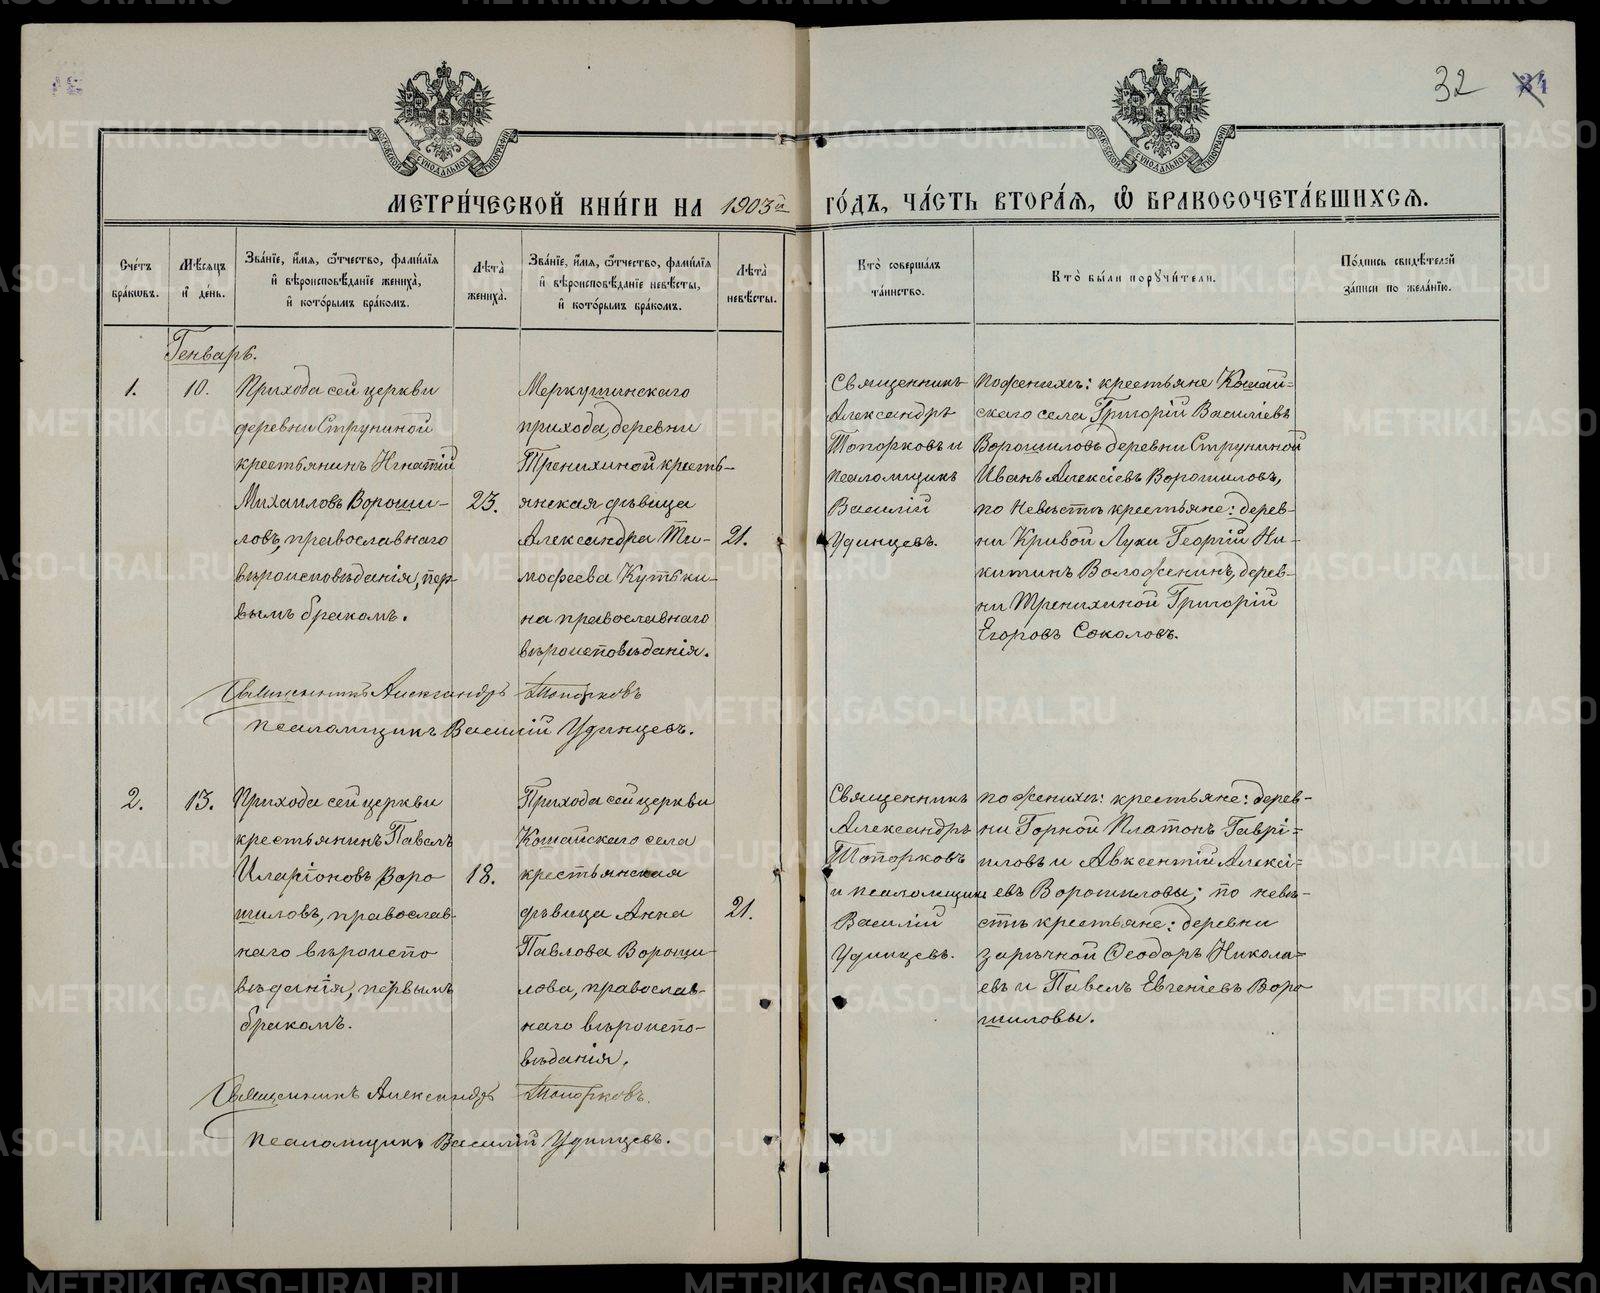 32
34
МЕТРИ́ЧЕСКОЙ КНИ́ГИ НА 1903й ГО́ДЪ, ЧА́СТЬ ВТОРА́Я, Ѡ БРАКОСОЧЕТА́ВШИХСЯ.
Сче́тъ бра́ковъ.
Мѣ́сяцъ и де́нь.
Зва́нїе, и́мя, ѻ́тчество, фами́лїя и вѣроисповѣ́данїе жениха̀, и кото́рымъ бра́комъ.
Лѣта̀ жениха̀.
Зва́нїе, и́мя, ѻ́тчество, фами́лїя и вѣроисповѣ́данїе невѣ́сты, и кото́рымъ бра́комъ.
Лѣта̀ невѣ́сты.
Кто̀ соверша́лъ та́инство.
Кто̀ бы́ли поручи́тели.
По́дпись свидѣ́телей за́писи по жела́нїю.
Генварь.
1.
10.
Прихода сей церкви
деревни Струниной
крестьянинъ Игнатій
Михаиловъ Вороши-
ловъ, православнаго
вѣроисповѣданія, пер-
вымъ бракомъ.
23.
Меркушинскаго
прихода, деревни
Тренихиной кресть-
янская дѣвица
Александра Ти-
мофеева Кутьки-
на православнаго
вѣроисповѣданія.
21.
Священникъ
Александръ
Топорковъ и
псаломщикъ
Василій
Удинцевъ.
По женихѣ: крестьяне Кошай-
скаго села Григорій Василіевъ
Ворошиловъ деревни Струниной
Иванъ Алексіевъ Ворошиловъ,
по невѣстѣ крестьяне: дерев-
ни Кривой Луки Георгій Ни-
китинъ Воложенинъ, дерев-
ни Тренихиной Григорій
Егоровъ Соколовъ.
Священникъ Александръ Топорковъ
Псаломщикъ Василій Удинцевъ.
2.
13.
Прихода сей церкви
крестьянинъ Павелъ
Иларіоновъ Воро
шиловъ, православ-
наго вѣроиспо
вѣданія, первымъ
бракомъ.
18.
Прихода сей церкви
Кошайскаго села
крестьянская
дѣвица Анна
Павлова Вороши-
лова, православ-
наго вѣроиспо-
вѣданія.
21.
Священникъ
Александръ
Топорковъ
и псаломщикъ
Василій
Удинцевъ.
По женихѣ: крестьяне: дерев-
ни Горной Платонъ Гаврі-
иловъ и Авксентій Алексі-
евъ Ворошиловы; по невѣ-
стѣ крестьяне: деревни
Зарѣчной Ѳеодоръ Никола-
евъ и Павелъ Евгеніевъ Воро
шиловы.
Священникъ Александръ Топорковъ.
Псаломщикъ Василій Удинцевъ.